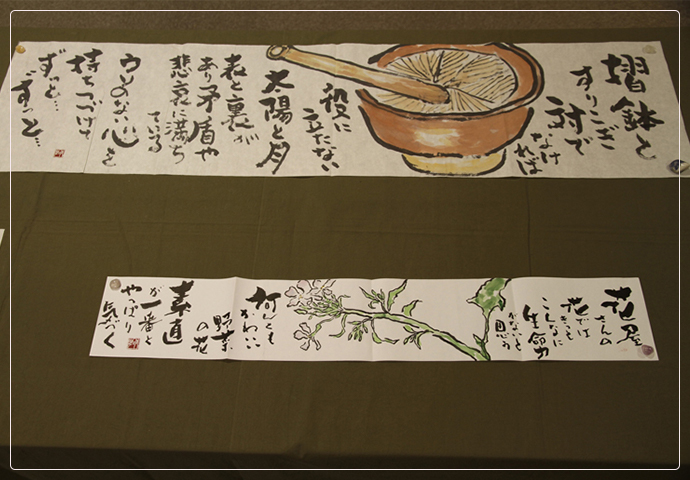 摺鉢と
すりこぎ
対で
なければ
役に
立たない
太陽と月
表と裏が
あり矛盾や
悲哀に満ち
ている
ウソのない心を
持ちつづけて
ずっと…
ずっと…
花屋
さんの
花では
きっと
こんなに
生命力
がないと
思う
何んとも
かわいい
野菜
の花
素直
が一番と
やっぱり
気づく